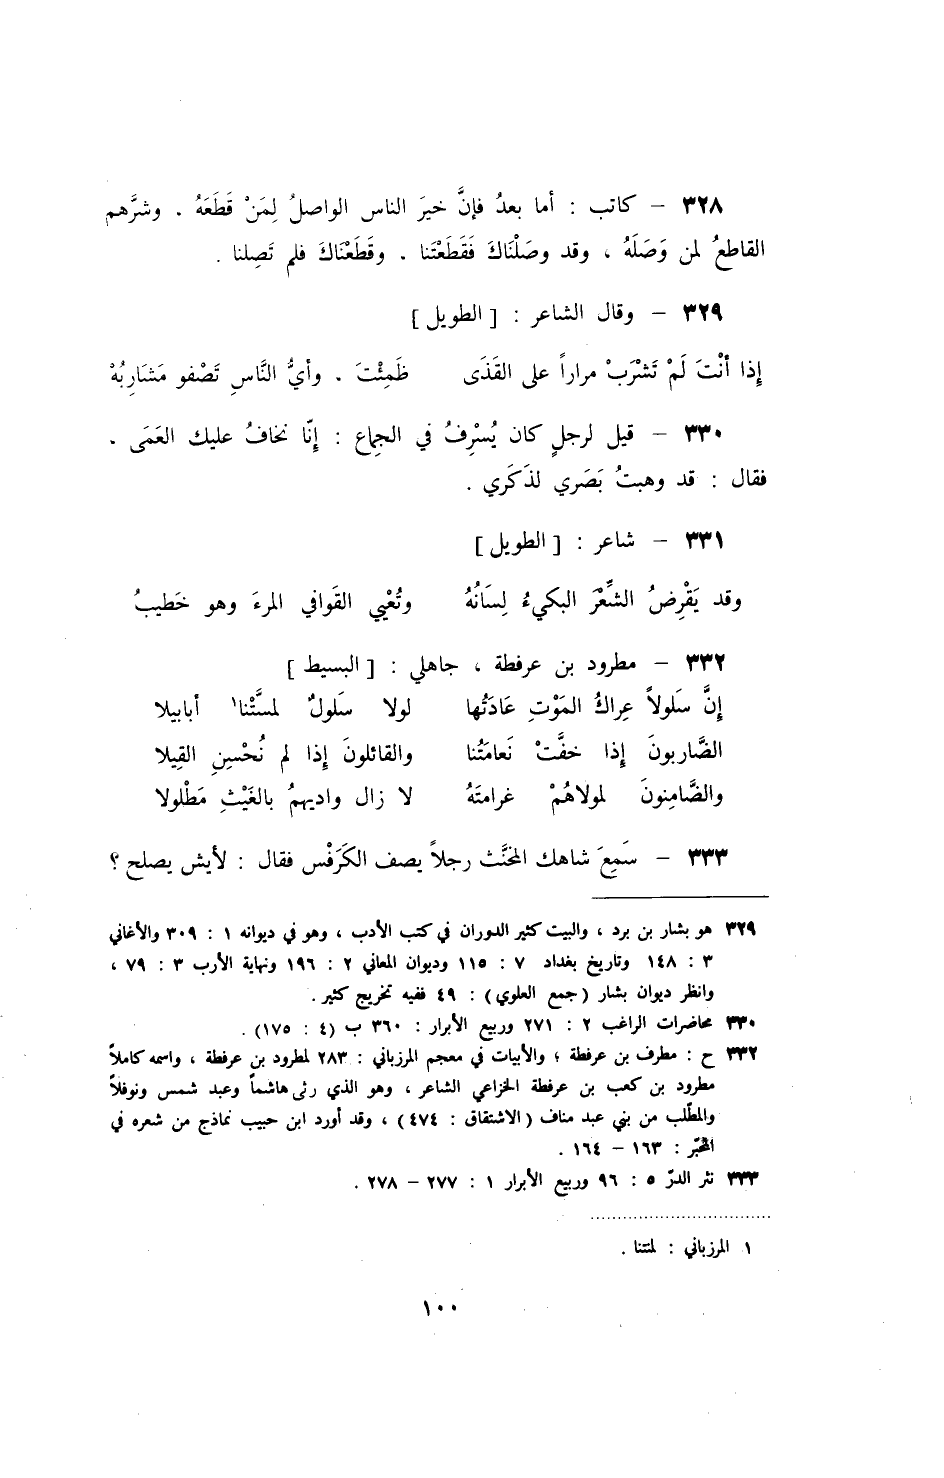 ٣٢٨ – كاتب : أما بعدُ فإنَّ خيرَ الناس الواصلُ لِمَنْ قَطَعَهُ . وشرَّهم
القاطعُ لمن وَصَلَهُ ، وقد وصَلْنَاكَ فَقَطَعْتَنا . وقَطَعْنَاكَ فلم تَصِلنا .
٣٢٩ – وقال الشاعر : [ الطويل ]
إذا أنْتَ لَمْ تَشْرَبْ مراراً على القَذَى ظَمِئْتَ . وأيُّ النَّاسِ تَصْفو مَشَارِبُهْ
٣٣٠ – قيل لرجلٍ كان يُسْرِفُ في الجِماع : إنّا نخافُ عليك العَمَى .
فقال : قد وهبتُ بَصَري لذَكَري .
٣٣١ – شاعر : [ الطويل ]
وقد يَقْرِضُ الشِّعْرَ البكيءُ لِسَانُهُ وتُعْيي القَوافي المرءَ وهو خَطيبُ
٣٣٢ – مطرود بن عرفطة ، جاهلي : [ البسيط ]
إنَّ سَلولاً عِراكُ المَوْتِ عَادَتُها لولا سَلولٌ لمسَّتْنا١ أبابيلا
الضَّاربونَ إذا خفَّتْ نَعامَتُنا والقائلونَ إذا لم نُحْسِنِ القِيلا
والضَّامِنونَ لمولاهُمْ غرامتَهُ لا زال واديهمُ بالغَيْثِ مَطْلولا
٣٣٣ – سَمِعَ شاهك المخنَّث رجلاً يصف الكَرَفْس فقال : لأيش يصلح ؟
٣٢٩ هو بشار بن برد ، والبيت كثير الدوران في كتب الأدب ، وهو في ديوانه ١ : ٣٠٩ والأغاني
٣ : ١٤٨ وتاريخ بغداد ٧ : ١١٥ وديوان المعاني ٢ : ١٩٦ ونهاية الأرب ٣ : ٧٩ ،
وانظر ديوان بشار (جمع العلوي) : ٤٩ ففيه تخريج كثير .
٣٣٠ محاضرات الراغب ٢ : ٢٧١ وربيع الأبرار : ٣٦٠ ب (٤ : ١٧٥) .
٣٣٢ ح : مطرف بن عرفطة ؛ والأبيات في معجم المرزباني : ٢٨٣ لمطرود بن عرفطة ، واسمه كاملاً
مطرود بن كعب بن عرفطة الخزاعي الشاعر ، وهو الذي رثى هاشماً وعبد شمس ونوفلاً
والمطّلب من بني عبد مناف (الاشتقاق : ٤٧٤) ، وقد أورد ابن حبيب نماذج من شعره في
المحبّر : ١٦٣ – ١٦٤ .
٣٣٣ نثر الدرّ ٥ : ٩٦ وربيع الأبرار ١ : ٢٧٧ – ٢٧٨ .
١ المرزباني : لمتنا .
١٠٠